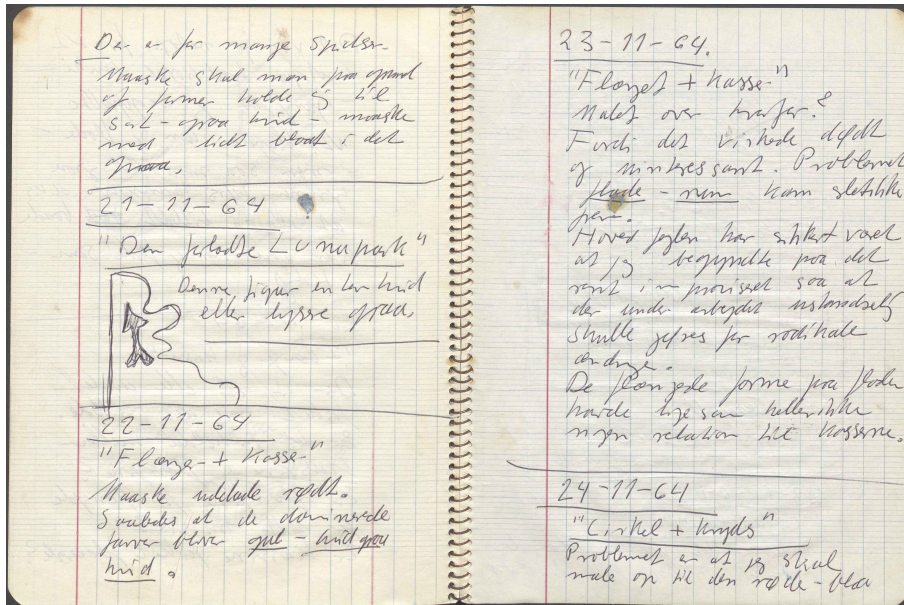 Der er for mange spidser.
Maaske skal man paa grund
af former holde sig til
sort - graa hvid - maaske
med lidt blaat i det
graa.
21-11-64
"Den forladte Lunapark"
Denne figur enten hvid
eller lysse graa.
22-11-64
"Flænger + Kasser"
Maaske udelade rødt.
Saaledes at de dominerede
farver bliver gul - hvid graa
hvid.
23-11-64.
"Flænget + Kasser"
Malet over hvorfor?
Fordi det virkede dødt
og uintressant. Problemet
flade - rum kom slet ikke
frem.
Hoved fejlen har sikkert været
at jeg begyndte paa det
rent improviseret saa at
der under arbejdet
skulle gøres for radikale
ændringer.
De flængede forme paa fladen
havde ligesom heller ikke
nogen relation til kasserne.
24-11-64
"Cirkel + Kryds"
Problemet er at jeg skal
male op til den røde - blaa